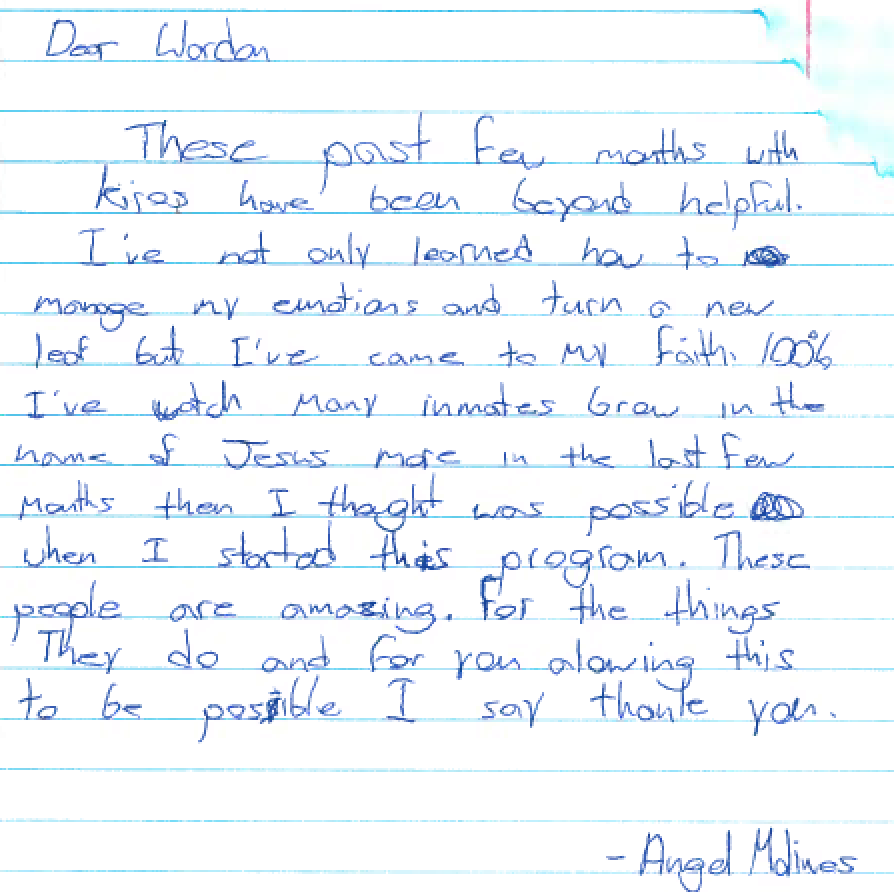 Dear Wardan
These past few months with
kiros have been beyond helpful.
I've not only learned how to
manage my emotions and turn a new
leaf but I've came to my faith. 100%
I've watch many inmates Grow in the
name of Jesus more in the last few
months then I thaght was possible
when I started this program. These
people are amazing. For the things
They do and for you alowing this
to be possible I say thank you.
- Angel Molines